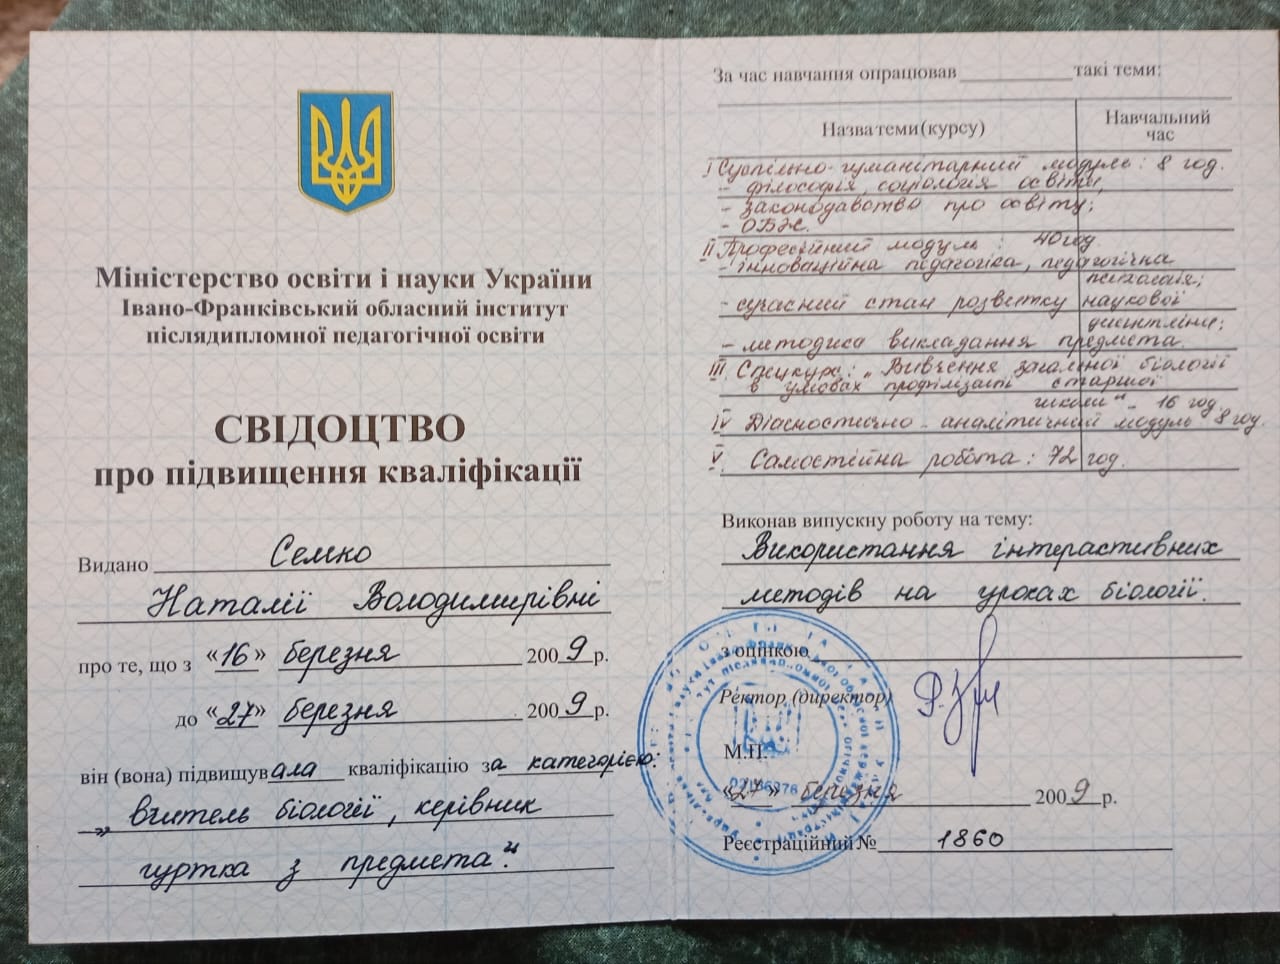 Міністерство освіти і науки України
Івано-Франківський обласний інститут
післядипломної педагогічної освіти
СВІДОЦТВО
про підвищення кваліфікації
Видано Семко
Наталії Володимирівні
про те, що з «16» березня 2009 р.
до «27» березня 2009 р.
він (вона) підвищувала кваліфікацію за категорією:
„ вчитель біології, керівник
гуртка з предмета".
За час навчання опрацював такі теми:
Назва теми (курсу)
Навчальний
час
I Суспільно-гуманітарний модуль: 8 год.
- філософія, соціологія освіти,
- законодавство про освіту;
- ОБЖ.
II Професійний модуль: 40 год.
- інноваційна підагогіка, педагогічна
психологія;
- сучасний стан розвитку наукової
дисципліни;
- методика викладання предмета.
III. Спецкурс: „Вивчення загальної біології
в умовах профілізації старшої
школи" - 16 год.
IV Діагностично-аналітичний модуль 8 год.
V. Самостійна робота: 72 год.
Виконав випускну роботу на тему:
Використання інтерактивних
методів на уроках біології.
з оцінкою
Ректор (директор)
М.П.
«27» березня 2009 р.
Реєстраційний № 1860